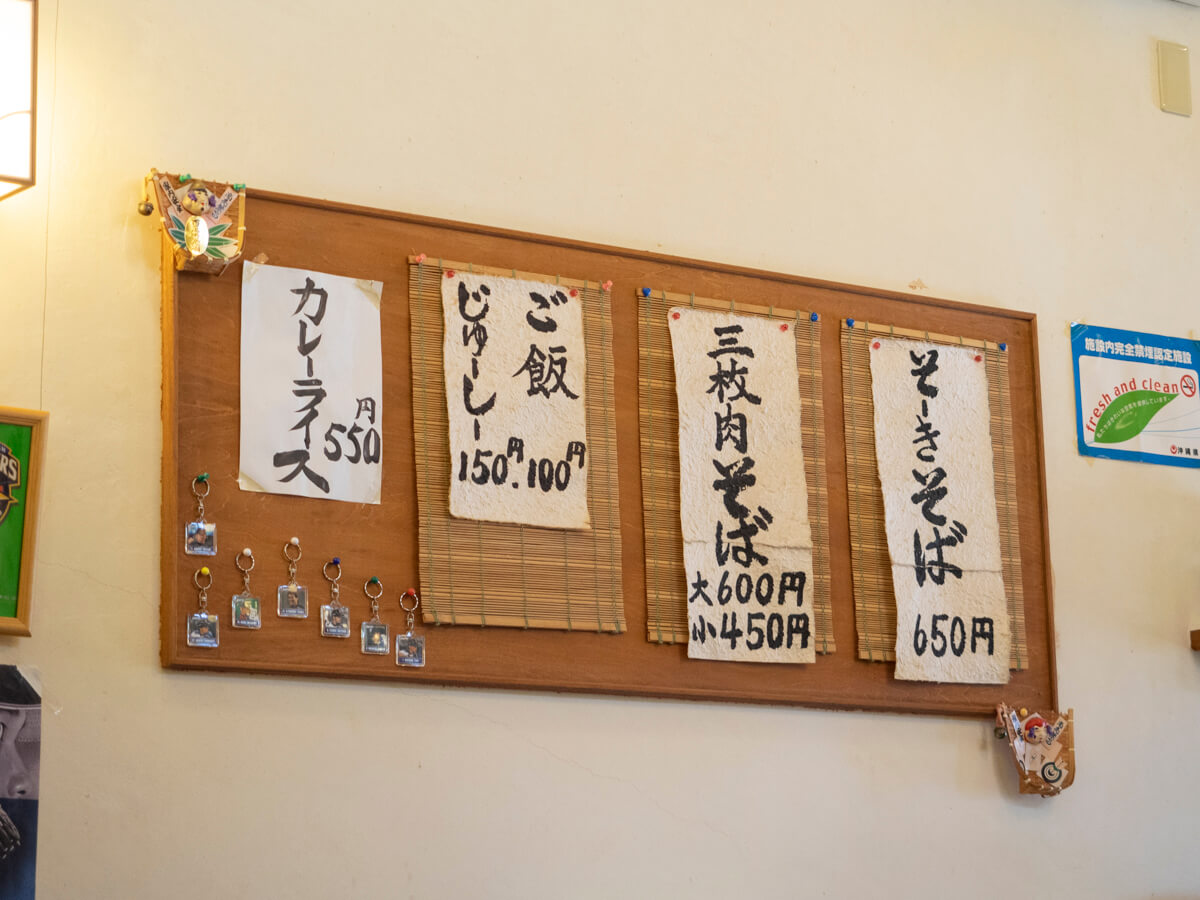 そーきそば
650円
三枚肉そば
大600円
小450円
ご飯
100円
じゅーしー
150円.
カレーライス
550円
施設内完全禁煙認定施設
fresh and clean
沖縄県